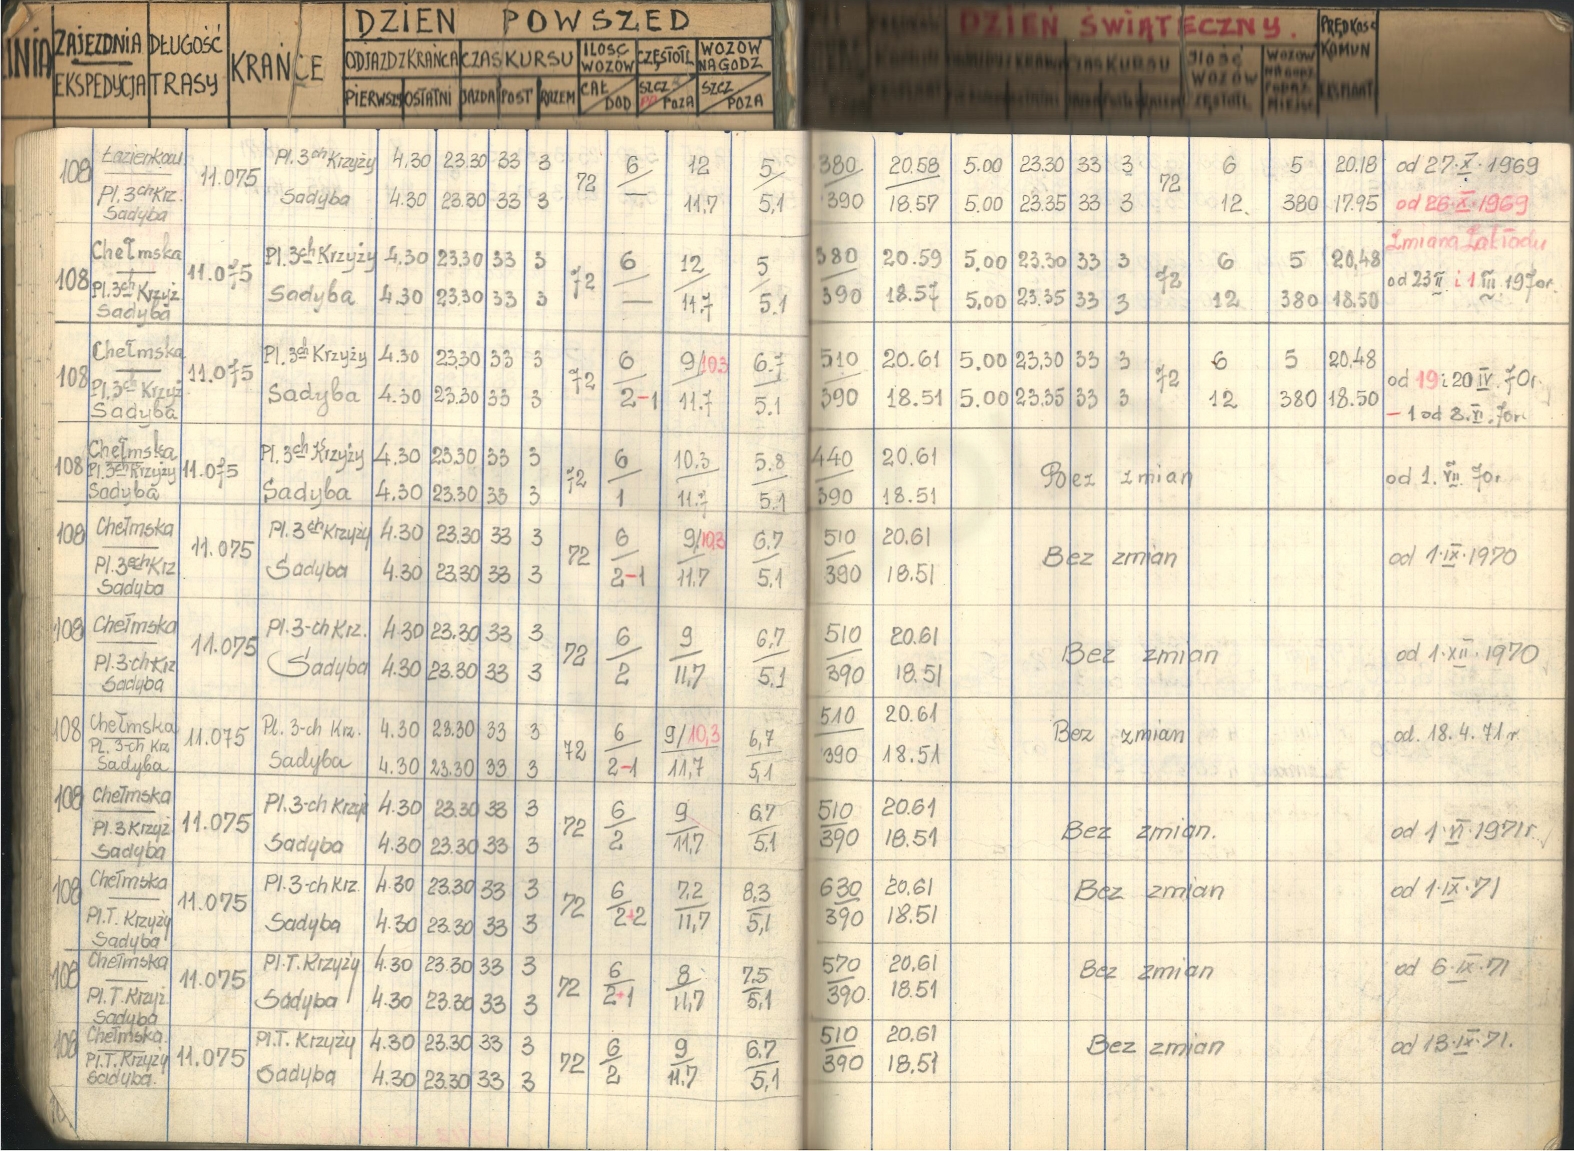 DZIEŃ POWSZED
DZIEŃ ŚWIĄTECZNY.
LINIA ZAJEZDNIA DŁUGOŚĆ KRAŃCE ODJAZD Z KRAŃCA CZAS KURSU ILOŚĆ WOZÓW CZĘSTOTL WOZOW NA GODZ PRĘDKOŚĆ KOMUN
EKSPEDYCJA TRASY PIERWSZY OSTATNI JAZDA POST RAZEM CAŁ DOD SZCZ POZA SZCZ POZA EKSPLOAT.
108 Łazienkow 11.075 Pl. 3ch Krzyży 4.30 23.30 33 3 72 6 12 5 380 20.58 5.00 23.30 33 3 72 6 5 20.18 od 27.X.1969
Pl. 3ch Krz. Sadyba 4.30 23.30 33 3 — 11,7 5,1 390 18.57 5.00 23.35 33 3 12. 380 17.95 od 26.X.1969
Sadyba
Zmiana Zakładu
108 Chełmska 11.075 Pl. 3ch Krzyży 4.30 23.30 33 3 72 6 12 5 380 20.59 5.00 23.30 33 3 72 6 5 20,48 od 23 II i 1 III 1970r.
Pl. 3ch Krzyż Sadyba 4.30 23.30 33 3 — 11.7 5.1 390 18.57 5,00 23.35 33 3 12 380 18.50
Sadyba
108 Chełmska 11.075 Pl. 3ch Krzyży 4.30 23.30 33 3 72 6 9/10.3 6.7 510 20.61 5.00 23.30 33 3 72 6 5 20,48 od 19 i 20 IV. 70r.
Pl. 3ch Krzyż Sadyba 4.30 23.30 33 3 2-1 11.7 5.1 390 18.51 5.00 23.35 33 3 12 380 18.50 -1 od 8. VI. 70r.
Sadyba
108 Chełmska 11.075 Pl. 3ch Krzyży 4.30 23.30 33 3 72 6 10.3 5.8 440 20.61 Bez zmian od 1. VII. 70r.
Pl. 3ch Krzyży Sadyba 4.30 23.30 33 3 1 11.7 5.1 390 18.51
Sadyba
108 Chełmska 11.075 Pl. 3ch Krzyży 4.30 23.30 33 3 72 6 9/10.3 6.7 510 20.61 Bez zmian od 1.IX.1970
Pl. 3ech Krz Sadyba 4.30 23.30 33 3 2-1 11.7 5,1 390 18.51
Sadyba
108 Chełmska 11.075 Pl. 3-ch Krz. 4.30 23.30 33 3 72 6 9 6,7 510 20.61 Bez zmian od 1.XII.1970
Pl. 3-ch Krz Sadyba 4.30 23.30 33 3 2 11,7 5,1 390 18.51
Sadyba
108 Chełmska 11.075 Pl. 3-ch Krz. 4.30 23.30 33 3 72 6 9/10,3 6,7 510 20.61 Bez zmian od. 18.4.71r
Pl. 3-ch Krz. Sadyba 4.30 23.30 33 3 2-1 11,7 5,1 390 18.51
Sadyba
108 Chełmska 11.075 Pl. 3-ch Krzyż 4.30 23.30 33 3 72 6 9 6,7 510 20.61 Bez zmian. od 1.VI.1971r.
Pl. 3 Krzyż Sadyba 4.30 23.30 33 3 2 11,7 5,1 390 18.51
Sadyba
108 Chełmska 11.075 Pl. 3-ch Krz. 4.30 23.30 33 3 72 6 7,2 8,3 630 20,61 Bez zmian od 1.IX.71
Pl. T. Krzyży Sadyba 4.30 23.30 33 3 2+2 11,7 5,1 390 18.51
Sadyba
108 Chełmska 11.075 Pl. T. Krzyży 4.30 23.30 33 3 72 6 8 7,5 570 20,61 Bez zmian od 6.IX.71
Pl. T. Krzyż. Sadyba 4.30 23.30 33 3 2+1 11,7 5,1 390. 18.51
Sadyba
108 Chełmska. 11.075 Pl. T. Krzyży 4.30 23.30 33 3 72 6 9 6.7 510 20.61 Bez zmian od 13.IX.71.
Pl. T. Krzyży Sadyba 4.30 23.30 33 3 2 11.7 5,1 390 18.51
Sadyba.